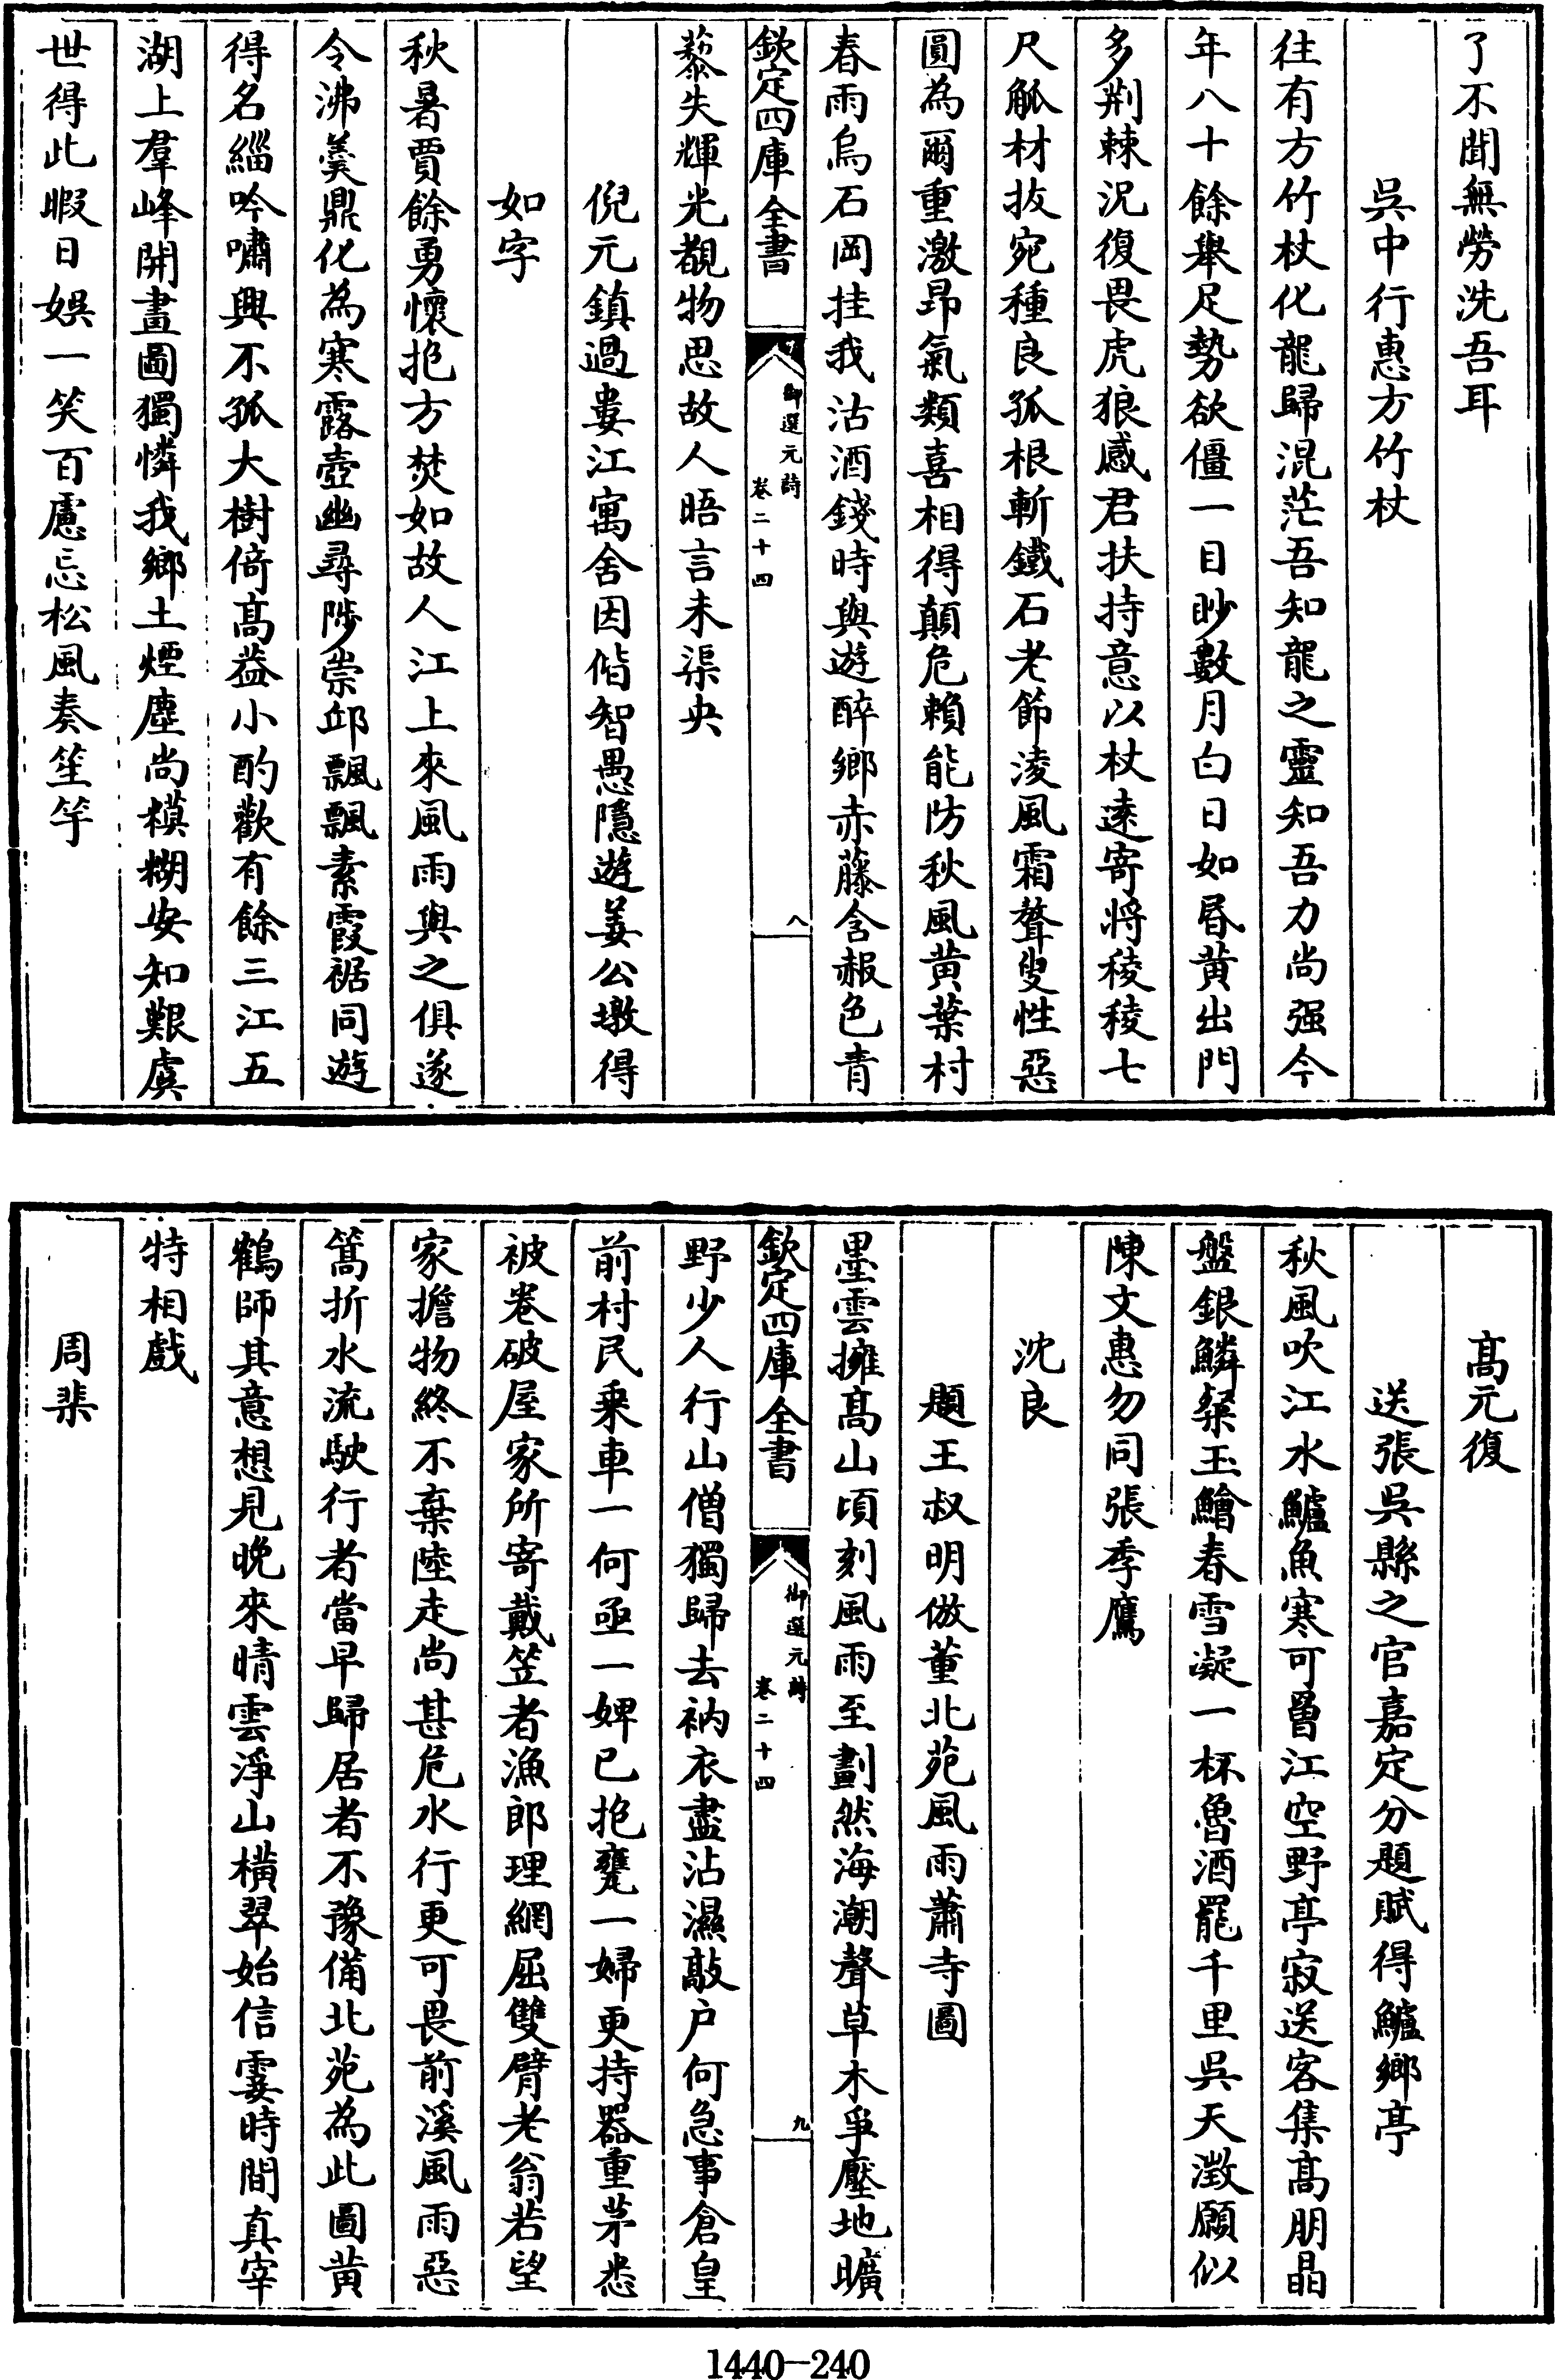 了不聞無勞洗吾耳
吳中行惠方竹杖
往有方竹杖化龍歸混茫吾知龍之靈知吾力尚强今
年八十餘舉足勢欲僵一目眇數月白日如昏黄出門
多荆棘況復畏虎狼感君扶持意以杖遠寄將稜稜七
尺觚材抜宛種良孤根斬鐵石老節淩風霜聱叟性惡
圓為爾重激昂氣類喜相得顛危賴能防秋風黄葉村
春雨烏石岡挂我沽酒錢時與遊醉鄉赤藤含赧色青
欽定四庫全書
御選元詩
卷二十四
八
藜失輝光覩物思故人晤言未渠央
倪元鎮過婁江寓舍因偕智愚隠遊姜公墩得
如字
秋暑賈餘勇懷抱方焚如故人江上來風雨與之俱遂
令沸羮鼎化為寒露壺幽尋陟崇邱飄飄素霞裾同遊
得名緇吟嘯興不孤大樹倚髙葢小酌歡有餘三江五
湖上羣峰開畫圖獨憐我鄉土煙塵尚模糊安知艱虞
世得此暇日娯一笑百慮忘松風奏笙竽
髙元復
送張吳縣之官嘉定分題賦得鱸鄉亭
秋風吹江水鱸魚寒可罾江空野亭寂送客集髙朋晶
盤銀鱗粲玉鱠春雪凝一杯魯酒罷千里吳天澂願似
陳文惠勿同張季鷹
沈良
題王叔明倣董北苑風雨蕭寺圖
墨雲擁髙山頃刻風雨至劃然海潮聲草木爭壓地曠
欽定四庫全書
御選元詩
卷二十四
九
野少人行山僧獨歸去衲衣盡沾濕敲户何急事倉皇
前村民乗車一何亟一婢已抱甕一婦更持器重茅悉
被卷破屋家所寄戴笠者漁郎理網屈雙臂老翁若望
家擔物終不棄陸走尚甚危水行更可畏前溪風雨惡
篙折水流駛行者當早歸居者不豫備北苑為此圖黄
鶴師其意想見晚來晴雲淨山横翠始信霎時間真宰
特相戲
周棐
1440—240